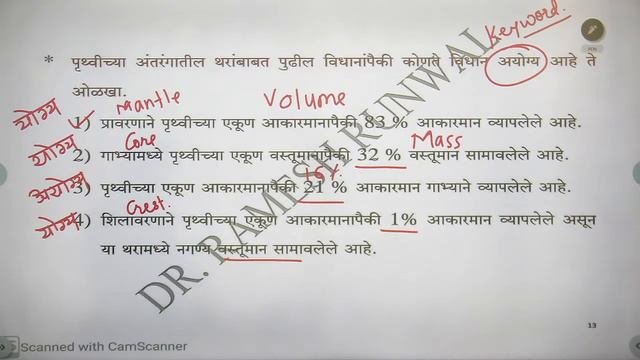 Keyword.
* पृथ्वीच्या अंतरंगातील थरांबाबत पुढील विधानांपैकी कोणते विधान अयोग्य आहे ते
ओळखा.
Mantle Volume
योग्य 1) प्रावरणाने पृथ्वीच्या एकूण आकारमानापैकी 83 % आकारमान व्यापलेले आहे.
Core Mass
योग्य 2) गाभ्यामध्ये पृथ्वीच्या एकूण वस्तूमानापैकी 32 % वस्तूमान सामावलेले आहे.
अयोग्य 3) पृथ्वीच्या एकूण आकारमानापैकी 21 % आकारमान गाभ्याने व्यापलेले आहे.
Crest.
योग्य 4) शिलावरणाने पृथ्वीच्या एकूण आकारमानापैकी 1% आकारमान व्यापलेले असून
या थरामध्ये नगण्य वस्तूमान सामावलेले आहे.
DR. RAMESH RUNWAL
13
Scanned with CamScanner